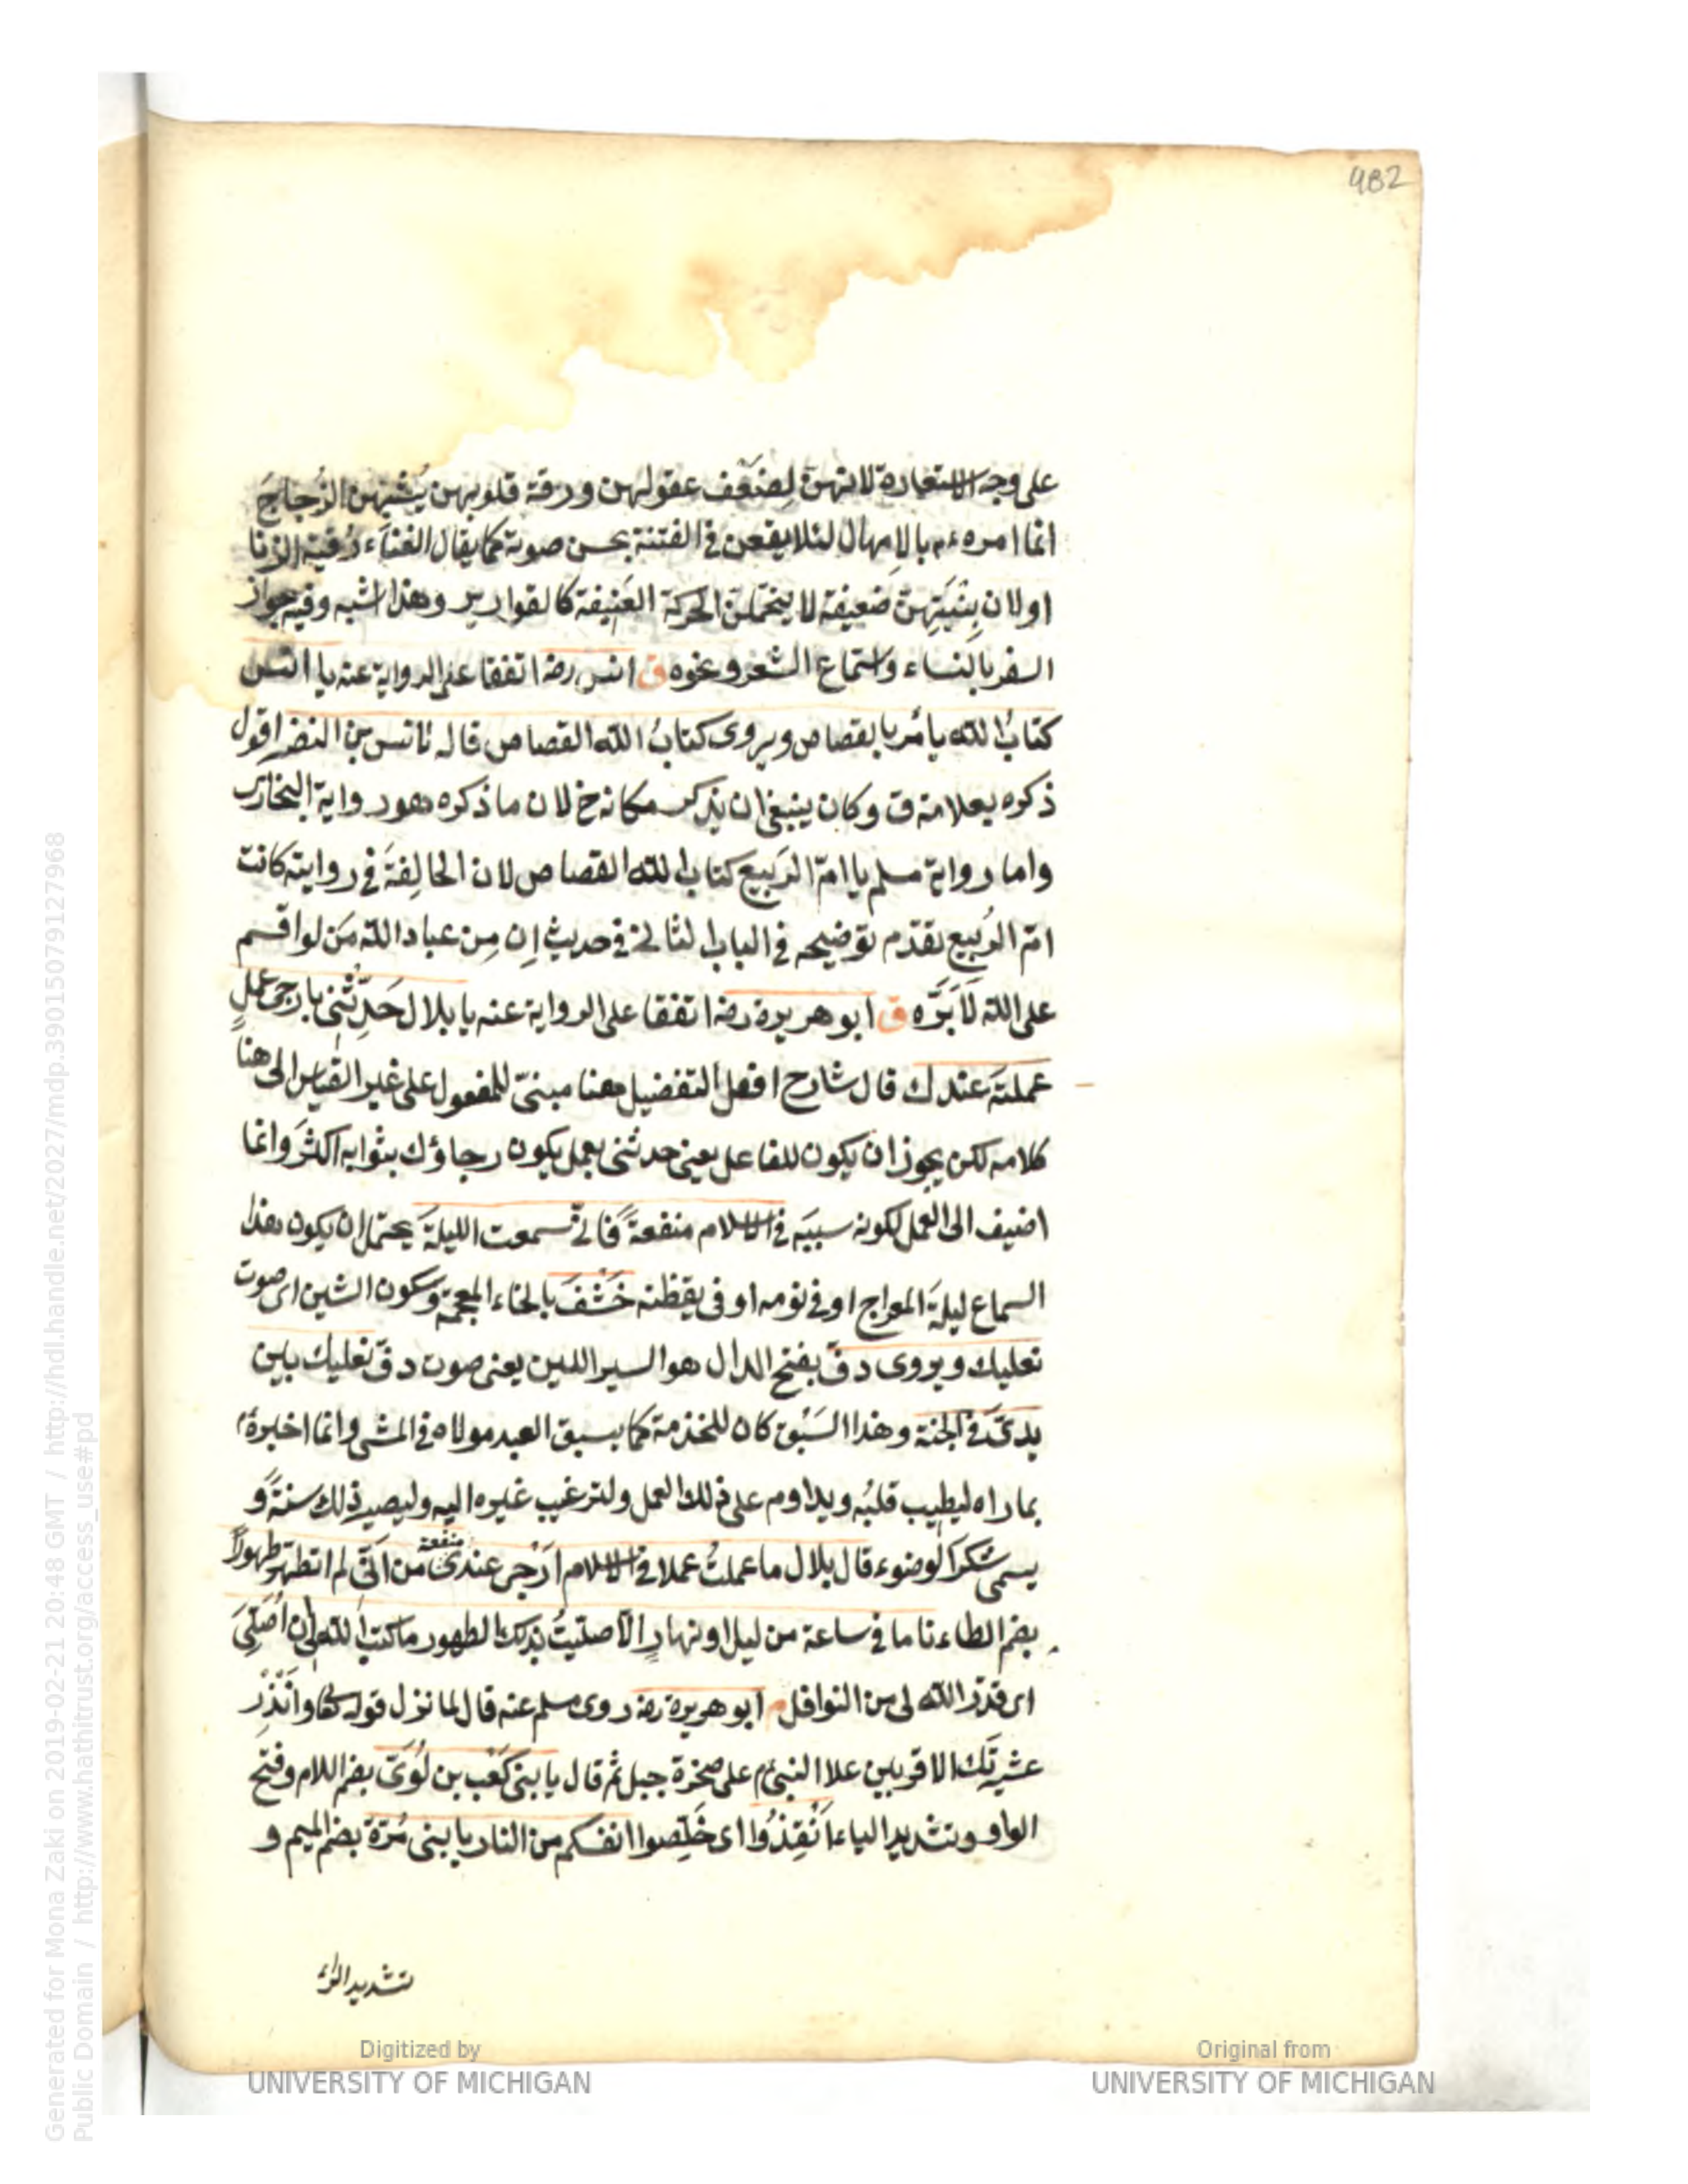 982
على وجه الاستعارة لانهن لِضَعْف عقولهن ورقة قلوبهن يُشْبِهن الزُجاجَ
انما امره ءم بالامهال لئلا يقعن في الفتنة بحسن صوته كما يقال الغناء رُقية الزنا
او لان بِنْيَتِهِنّ ضعيفة لا يتحملن الحركة العَنِيفة كالقوارير وهذا اشبه وفيه جواز
السفر بالنساء واستماع الشعر ونحوه ق انس رضه اتفقا على الرواية عنه يا انس
كتابُ الله يأمر بالقصاص ويروى كتابُ الله القصاص قاله لانس بن النضر اقول
ذكره بعلامة ق وكان ينبغي ان يذكر مكانه خ لان ما ذكره هو رواية البخاري
واما رواية مسلم يا امّ الرَبيع كتاب الله القصاص لان الحالِفةَ في روايته كانت
امّ الرُبيع تقدّم توضيحه في الباب الثاني في حديث اِن مِن عباد الله مَن لو اقسم
على الله لَاَبَرَّه ق ابو هريرة رضه اتفقا على الرواية عنه يا بلال حَدِّثْني بارجى عملٍ
عملتَه عندك قال شارح افعل التفضيل ههنا مبنيّ للمفعول على غير القياس الى هنا
كلامه لكن يجوز ان يكون للفاعل يعني حدثني بعمل يكون رجاؤك بثوابه اكثرَ وانما
اضيف الى العمل لكونه سببَه في الاسلام منفعةً فَاني سمعت الليلةَ يحتمل ان يكون هذا
السماع ليلةَ المعراج او في نومه او في يقظته خَشْفَ بالخاء المعجمة وسكون الشين اى صوت
نعليك ويروى دفّ بفتح الدال هو السير اللين يعنى صوت دفّ نعليك بين
يدىّ في الجنة وهذا السَبْق كان للخدمة كما يسبق العبد مولاه في المشى وانما اخبره م
بما راه ليطيب قلبُه ويداوم على ذلك العمل ولترغيب غيره اليه وليصير ذلك سنةً و
يسمى شكرَ الوضوء قال بلال ما عملتُ عملا في الاسلام اَرْجى عندىْ منفعة من انّي لم اتطهر طهورًا
بضم الطاء تاما في ساعة من ليل او نهارٍ الّا صلّيتُ بذلك الطهور ما كتبَ الله لى ان اُصَلّىَ
اى قدّر الله لى من النوافل م ابو هريرة رضه روى مسلم عنه قال لما نزل قوله تعا واَنْذِرْ
عشيرتَك الاقربين علا النبيّ م على صخرة جبل ثم قال يا بنى كَعْب بن لُوَىّ بضم اللام وفتح
الواو وتشديد الياء اَنْقِذُوا اى خَلِّصوا انفسكم من النار يا بنى مُرّة بضم الميم و
تشديد الراء
Generated for Mona Zaki on 2019-02-21 20:48 GMT / http://hdl.handle.net/2027/mdp.39015079127968
Public Domain / http://www.hathitrust.org/access_use#pd
Digitized by
UNIVERSITY OF MICHIGAN
Original from
UNIVERSITY OF MICHIGAN